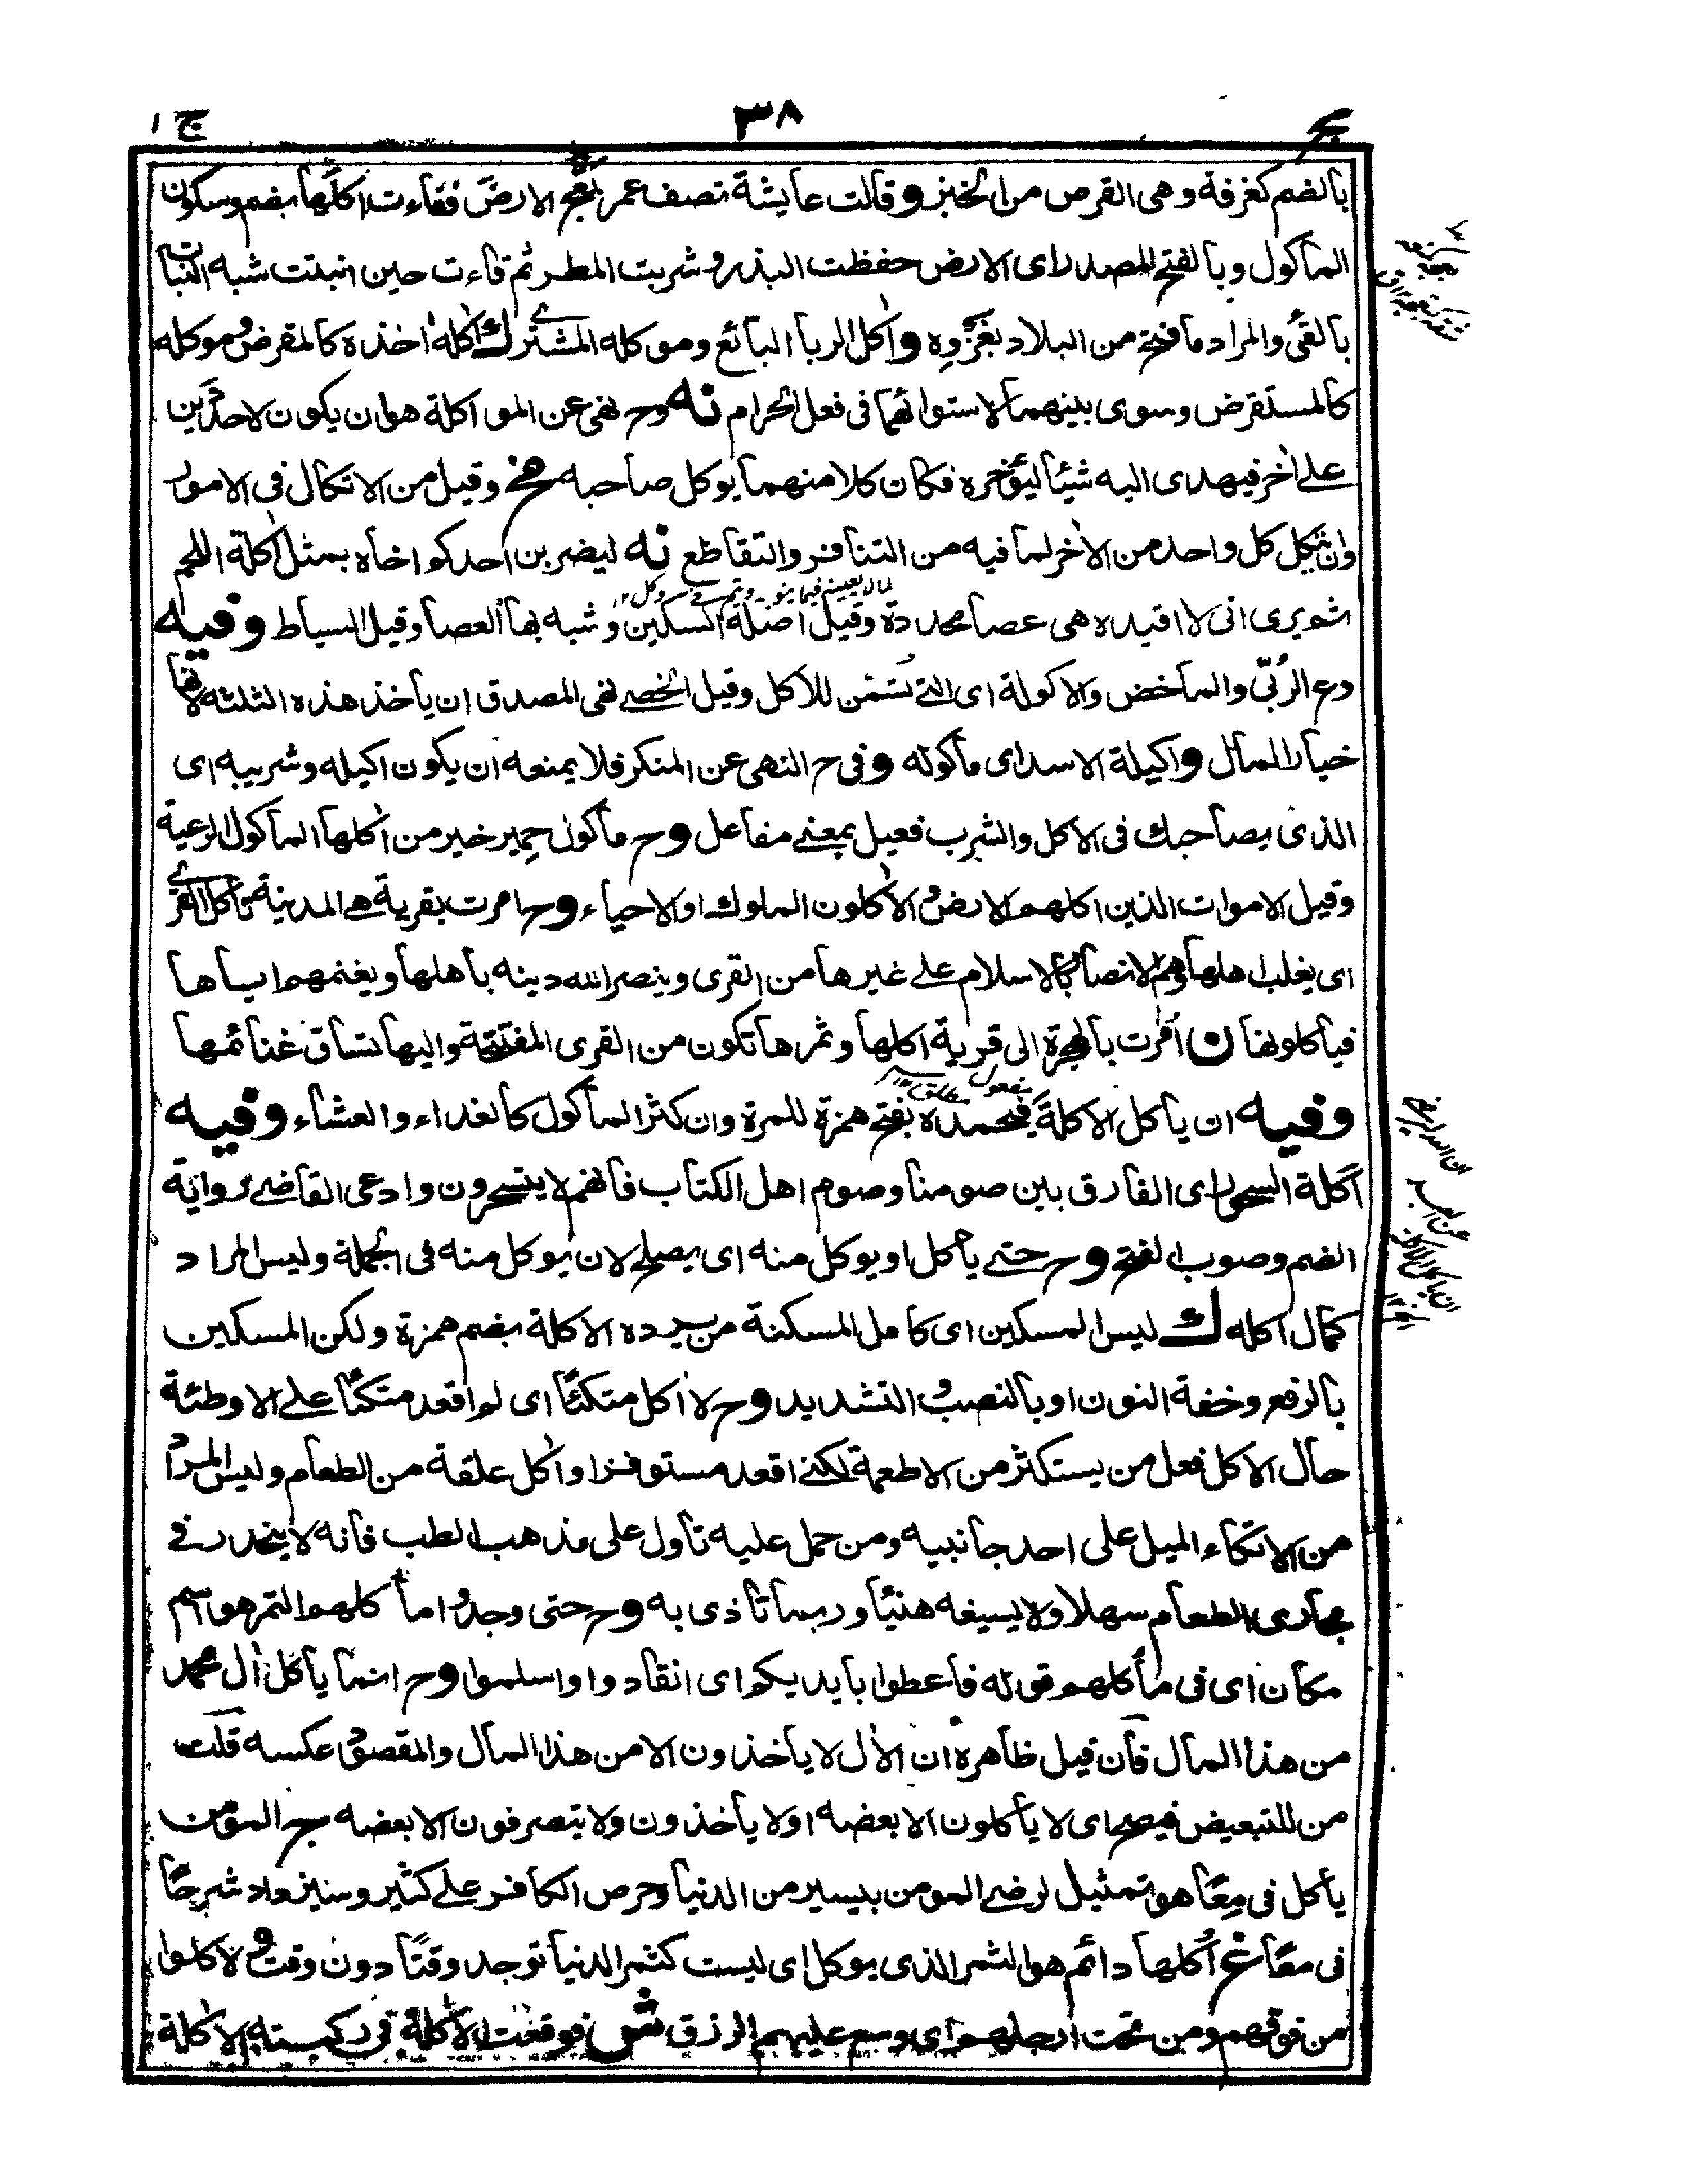 مجمع ٣٨ ج ١
بالضم كغرفة وهى القرص من الخبز وقالت عايشة تصف عمر بعج الارض فقاءت اكلها بضم وسكون
الماكول وبالفتح المصدر اى الارض حفظت البذر وشربت المطر ثم قاءت حين انبتت شبه النبات
بالقئ والمراد ما فتح من البلاد بغزوه واكل الربا البائع وموكله المشترى ك اكله اخذه كالمقرض وموكله
كالمستقرض وسوى بينهما لاستوائهما فى فعل الحرام نه وح نهى عن المواكلة هو ان يكون لاحد دين
على اخر فيهدى اليه شيئا ليؤخره فكان كلا منهما يوكل صاحبه مخ وقيل من الاتكال فى الامور
وان يتكل كل واحد من الاخر لما فيه من التنافر والتقاطع نه ليضربن احدكم اخاه بمثل اكلة اللحم
ثم يرى انى لا اقيده هى عصا محددة وقيل اصله السكين وشبه بها العصا وقيل السياط وفيه
دع الربى والماخض والاكولة اى التى تسمن للاكل وقيل الخصى نهى المصدق ان ياخذ هذه الثلثة لانها
خيار المال واكيلة الاسد اى ماكوله وفى ح النهى عن المنكر فلا يمنعه ان يكون اكيله وشريبه اى
الذى يصاحبك فى الاكل والشرب فعيل بمعنى مفاعل وح ماكول حمير خير من اكلها الماكول الرعية
وقيل الاموات الذين اكلهم الارض والاكلون الملوك او الاحياء وح امرت بقرية هى المدينة تاكل القرى
اى يغلب اهلها وهم الانصار بالاسلام على غيرها من القرى وينصر الله دينه باهلها ويغنمهم اياها
فياكلونها ن امرت بالهجرة الى قرية اكلها وثمرها تكون من القرى المفتتحة واليها تساق غنائمها
وفيه ان ياكل الاكلة فيحمده بفتح همزة للمرة وان كثر الماكول كالغداء والعشاء وفيه
اكلة السحر اى الفارق بين صومنا وصوم اهل الكتاب فانهم لا يتسحرون وادعى القاضى رواية
الضم وصوب الفتح وح حتى ياكل او يوكل منه اى يصلح لان يوكل منه فى الجملة وليس المراد
كمال اكله ك ليس المسكين اى كامل المسكنة من يرده الاكلة بضم همزة ولكن المسكين
بالرفع وخفة النون او بالنصب والتشديد وح لا اكل متكئا اى لم اقعد متكئا على الاوطئة
حال الاكل فعل من يستكثر من الاطعمة لكنى اقعد مستوفزا واكل علقة من الطعام وليس المراد
من الاتكاء الميل على احد جانبيه ومن حمل عليه تاول على مذهب الطب فانه لا ينحدر فى
مجارى الطعام سهلا ولا يسيغه هنيئا وربما تاذى به وح حتى وجدوا ماكلهم التمر هو اسم
مكان اى فى ماكلهم قوله فاعطوا بايديكم اى انقادوا واسلموا وح انما ياكل ال محمد
من هذا المال فان قيل ظاهره ان الال لا ياخذون الا من هذا المال والمقصود عكسه قلت
من للتبعيض فيصح اى لا ياكلون الا بعضه او لا ياخذون ولا يتصرفون الا بعضه ج المومن
ياكل فى معا هو تمثيل لرضى المومن بيسير من الدنيا وحرص الكافر على كثير وسنيز داد شرحا
فى معا غ اكلها دائم هو الثمر الذى يوكل اى ليست كثمر الدنيا توجد وقتا دون وقت ولاكلوا
من فوقهم ومن تحت ارجلهم اى وسع عليهم الرزق ش فوقعت الاكلة فى ركبته الاكلة